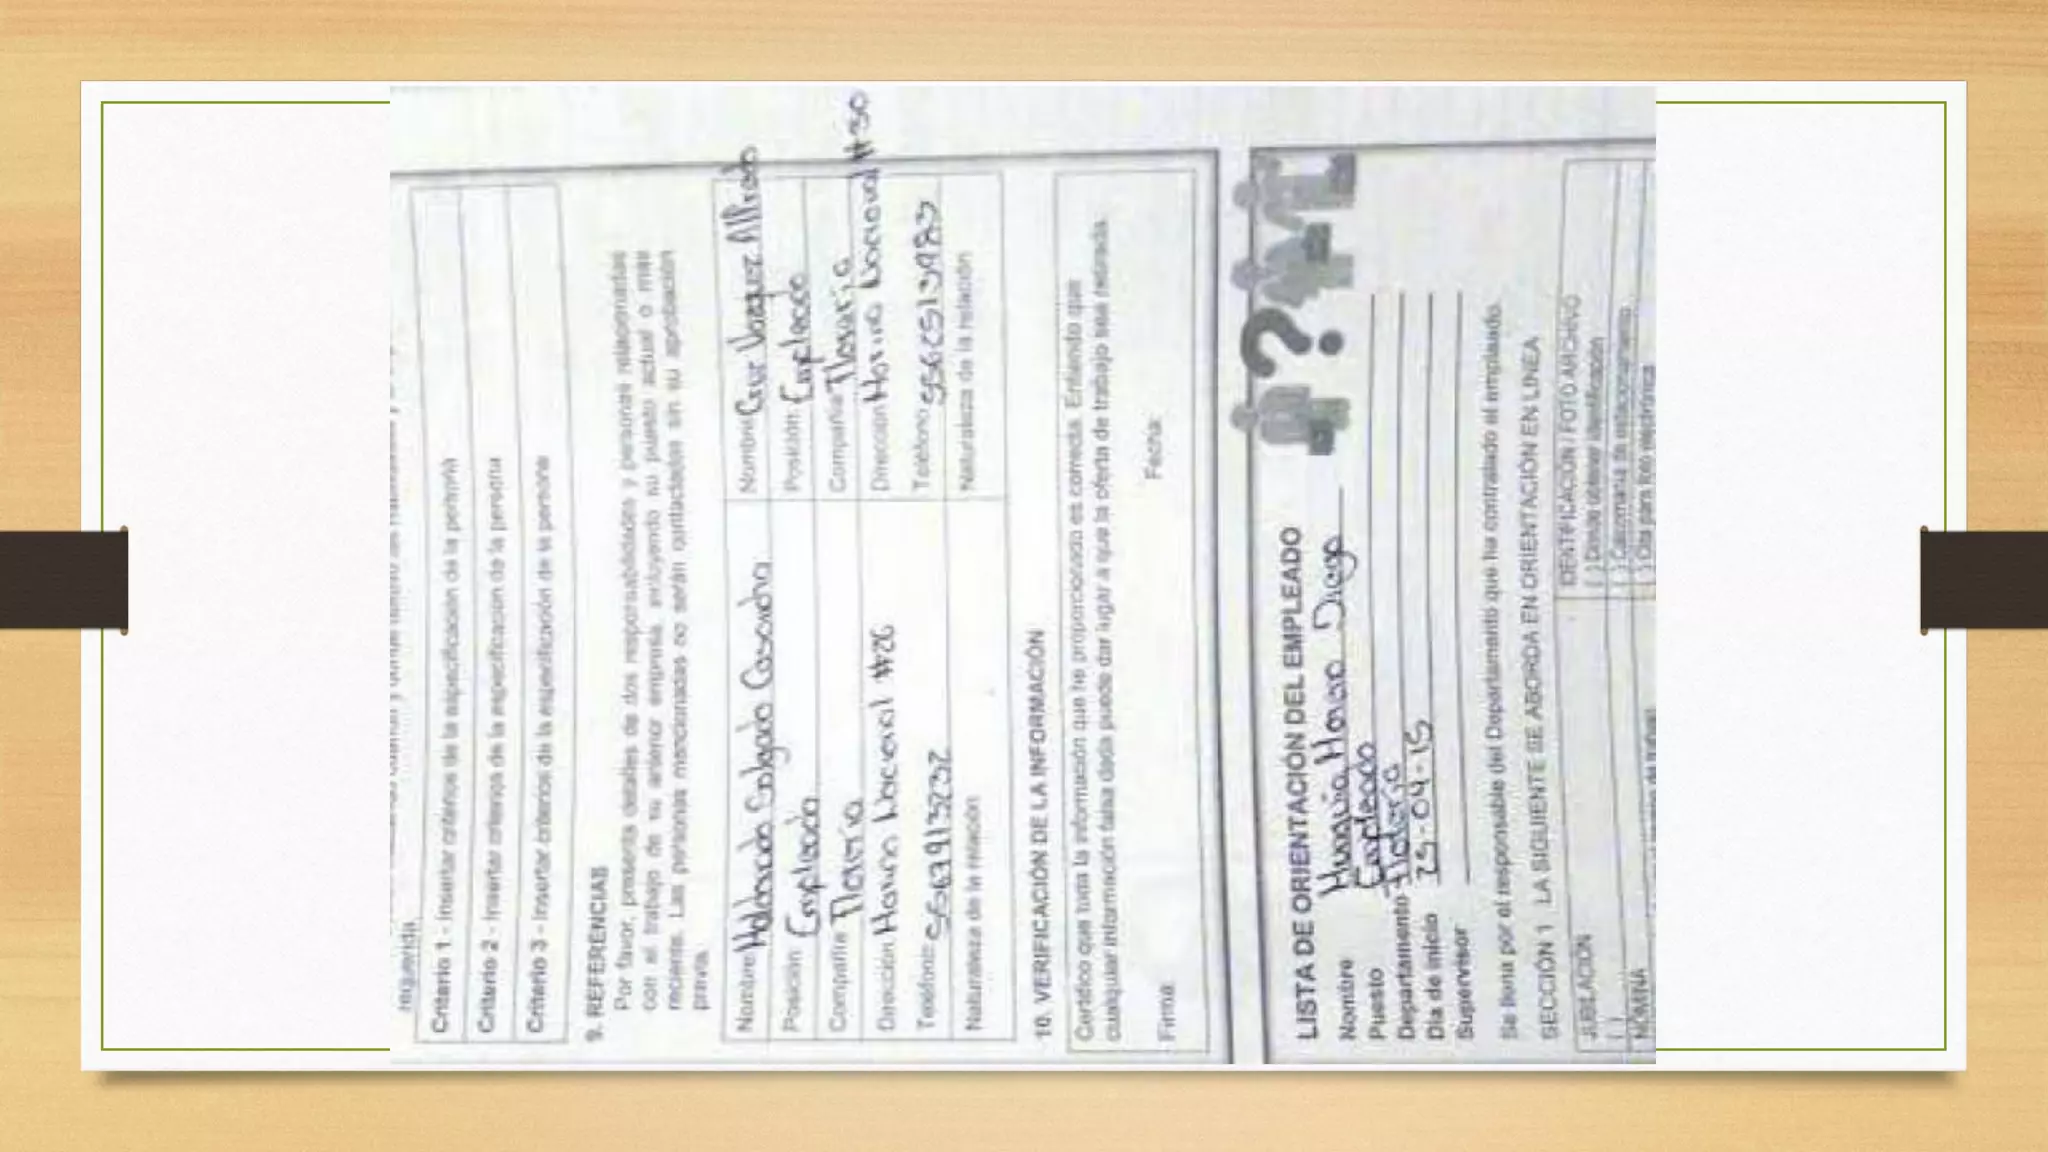 requerida
Criterio 1 - Insertar criterios de la especificación de la persona
Criterio 2 - Insertar criterios de la especificación de la persona
Criterio 3 - Insertar criterios de la especificación de la persona
9. REFERENCIAS
Por favor, presenta detalles de dos responsabilidades y personas relacionadas
con el trabajo de su anterior empresa, incluyendo su puesto actual o mas
reciente. Las personas mencionadas no serán contactadas sin su aprobación
previa.
Nombre Maldonado Salgado Casandra
Nombre Cruz Vazquez Alfredo
Posición Empleada
Posición Empleado
Compañía
Compañía
Dirección Marina Nacional #26
Dirección Marina Nacional #30
Teléfono 5567913232
Teléfono
Naturaleza de la relación
Naturaleza de la relación
10. VERIFICACIÓN DE LA INFORMACIÓN
Certifico que toda la información que he proporcionado es correcta. Entiendo que
cualquier información falsa dada puede dar lugar a que la oferta de trabajo sea retirada.
Firma:
Fecha:
LISTA DE ORIENTACIÓN DEL EMPLEADO
Nombre Diego
Puesto Empleado
Departamento
Día de inicio 23-04-15
Supervisor
Se llena por el responsable del Departamento que ha contratado al empleado.
SECCIÓN 1 LA SIGUIENTE SE ABORDA EN ORIENTACIÓN EN LINEA
JUBILACIÓN
IDENTIFICACIÓN / FOTO ARCHIVO
( ) Donde obtener identificación
( )
( ) Calcomanía de estacionamiento
NÓMINA
( ) Cita para foto electrónica